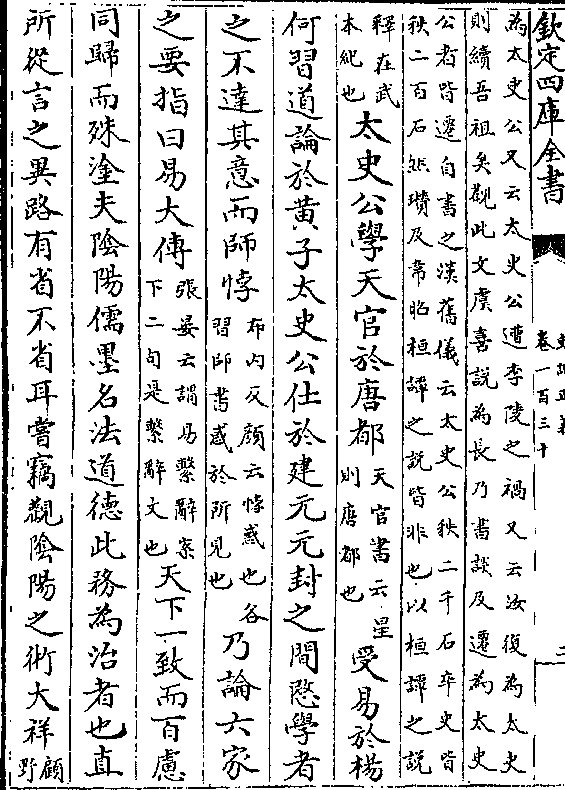 欽定四庫全書
史記正義
卷一百三十
二
為太史公又云太史公遭李陵之禍又云汝復為太史
則續吾祖矣觀此文虞喜說為長乃書談及遷為太史
公者皆遷自書之漢舊儀云太史公秩二千石卒史皆
秩二百石然瓚及韋昭桓譚之說皆非也以桓譚之說
釋在武本紀也太史公學天官於唐都天官書云星則唐都也受易於楊
何習道論於黄子太史公仕於建元元封之間愍學者
之不達其意而師悖布内反顔云悖惑也各習師書惑於所見也乃論六家
之要指曰易大傳張晏云謂易繫辭案下二句是繫辭文也天下一致而百慮
同歸而殊塗夫陰陽儒墨名法道德此務為治者也直
所從言之異路有省不省耳嘗竊觀陰陽之術大祥顧野